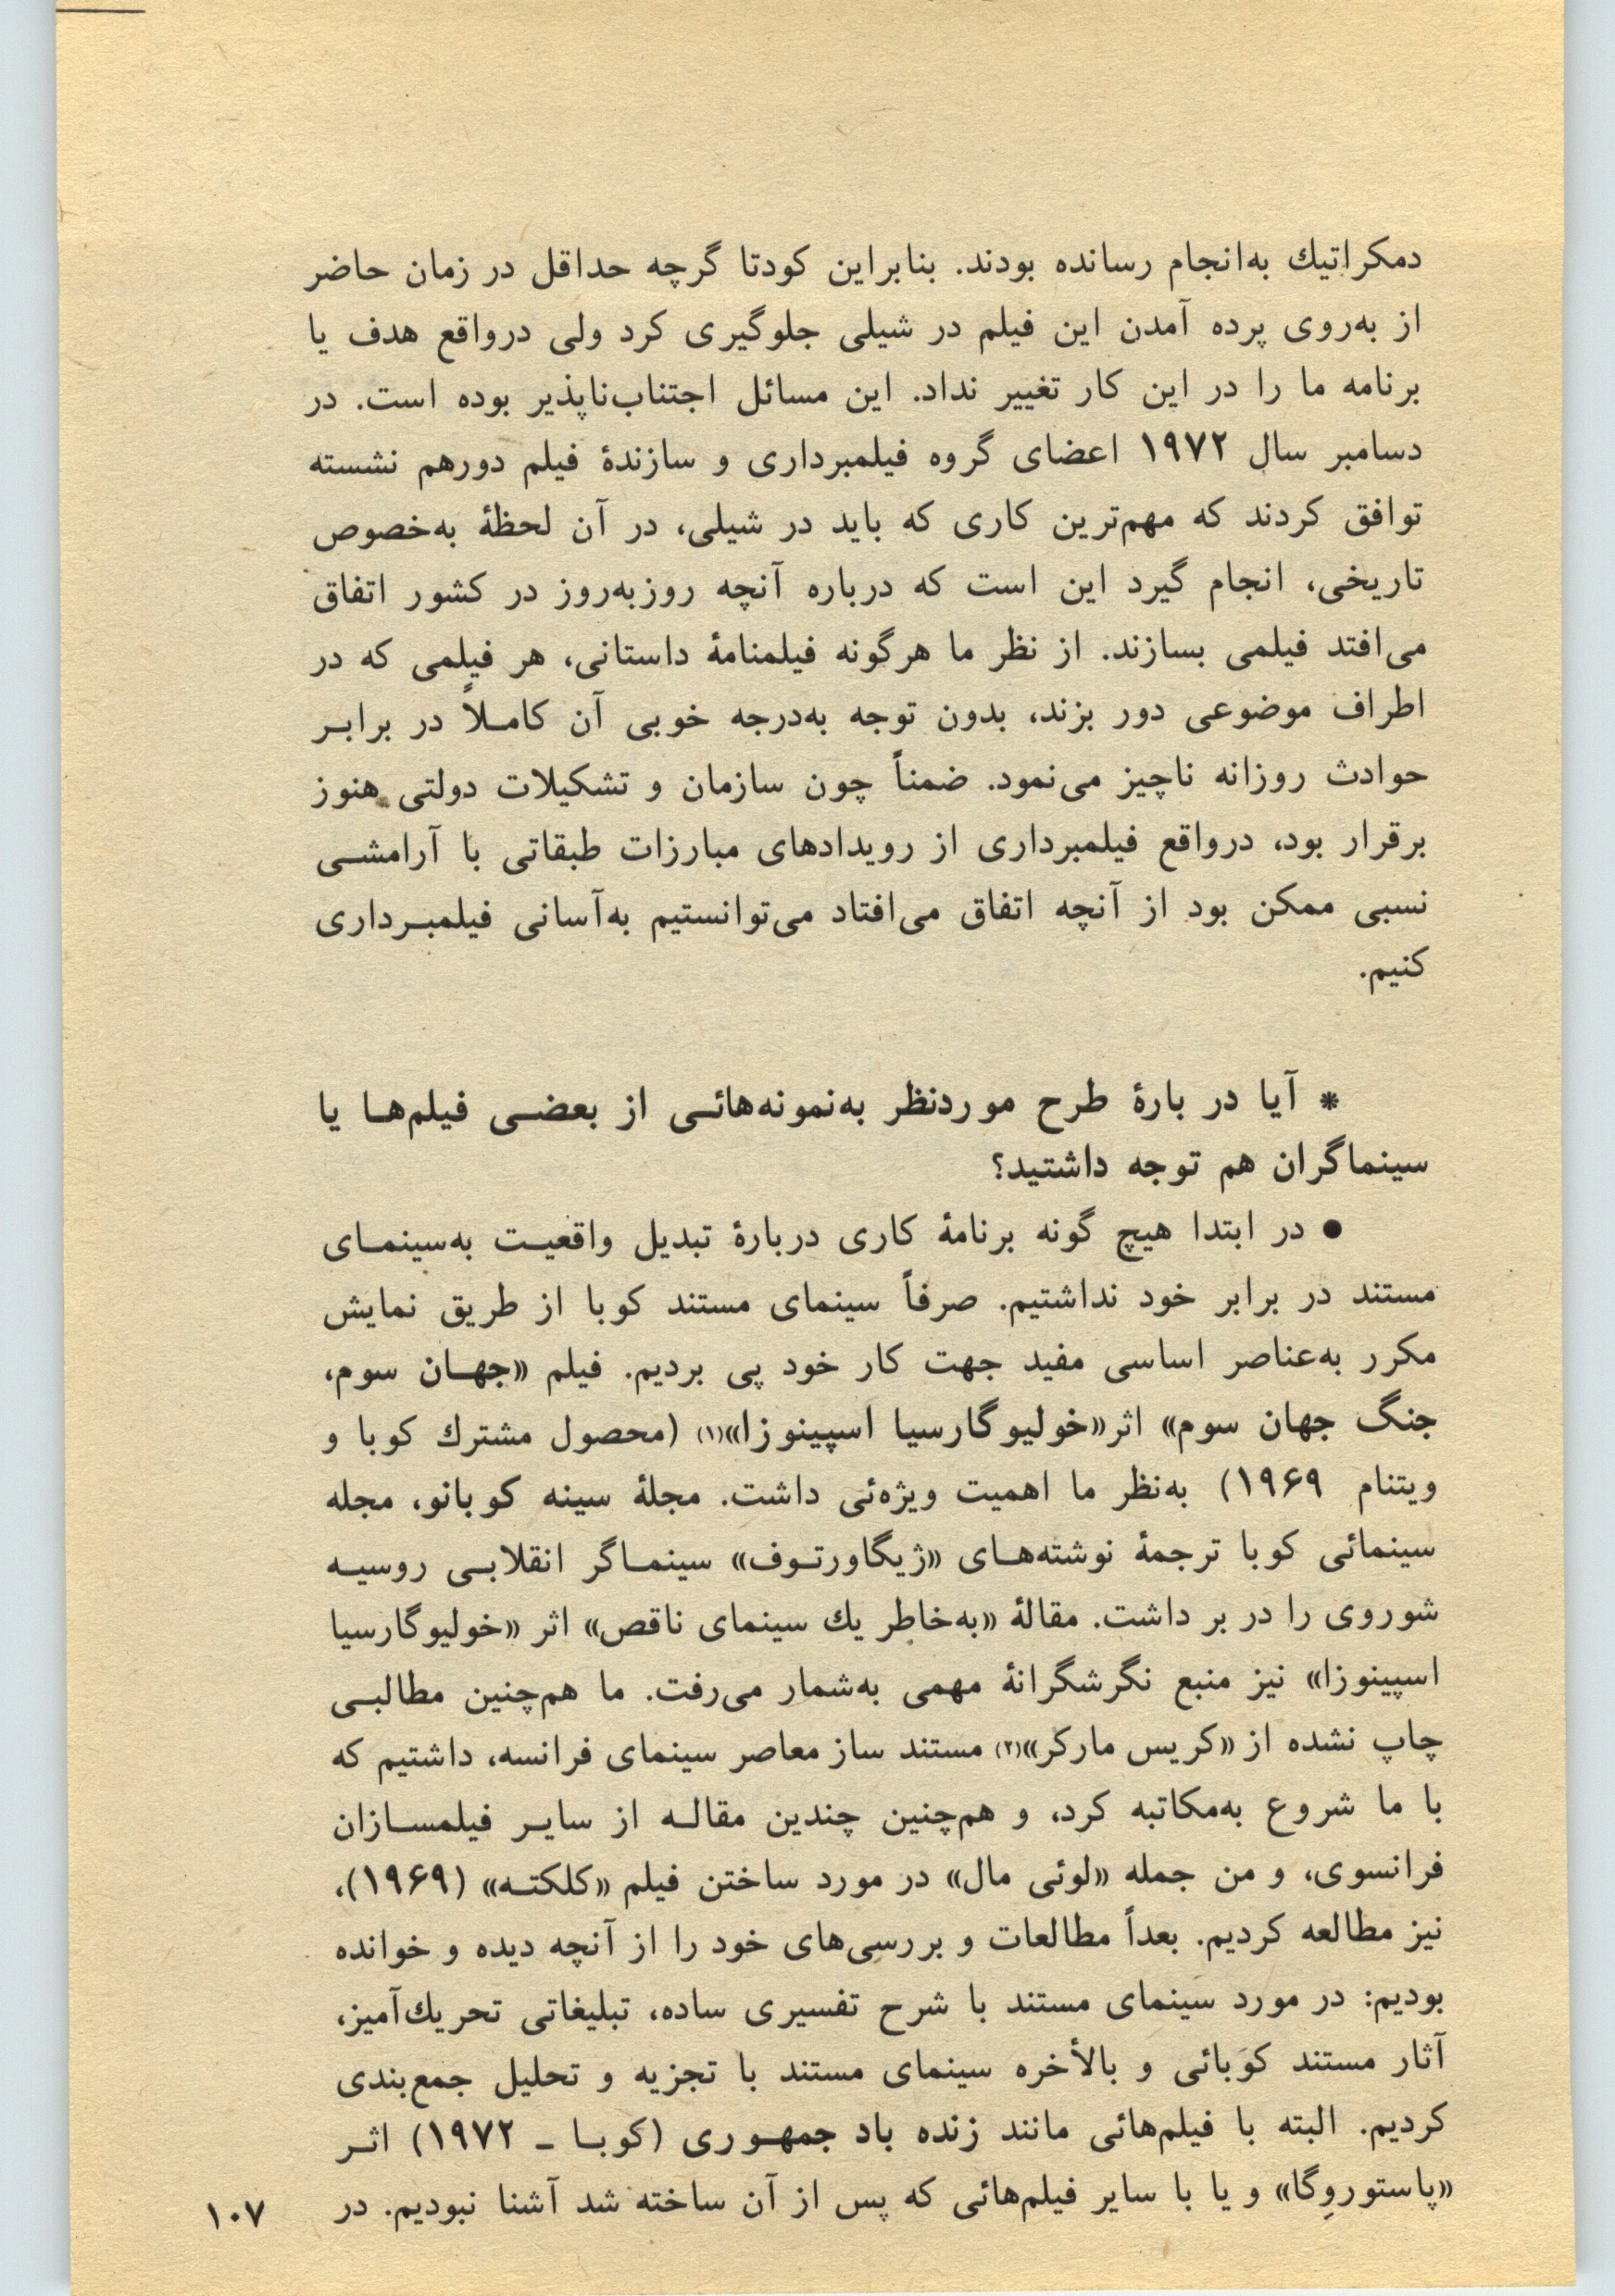 دمکراتیك به‌انجام رسانده بودند. بنابراین کودتا گرچه حداقل در زمان حاضر
از به‌روی پرده آمدن این فیلم در شیلی جلوگیری کرد ولی درواقع هدف یا
برنامه ما را در این کار تغییر نداد. این مسائل اجتناب‌ناپذیر بوده است. در
دسامبر سال ۱۹۷۲ اعضای گروه فیلمبرداری و سازندهٔ فیلم دورهم نشسته
توافق کردند که مهم‌ترین کاری که باید در شیلی، در آن لحظهٔ به‌خصوص
تاریخی، انجام گیرد این است که درباره آنچه روزبه‌روز در کشور اتفاق
می‌افتد فیلمی بسازند. از نظر ما هرگونه فیلمنامهٔ داستانی، هر فیلمی که در
اطراف موضوعی دور بزند، بدون توجه به‌درجه خوبی آن کاملاً در برابر
حوادث روزانه ناچیز می‌نمود. ضمناً چون سازمان و تشکیلات دولتی هنوز
برقرار بود، درواقع فیلمبرداری از رویدادهای مبارزات طبقاتی با آرامشی
نسبی ممکن بود از آنچه اتفاق می‌افتاد می‌توانستیم به‌آسانی فیلمبرداری
کنیم.
* آیا در بارهٔ طرح موردنظر به‌نمونه‌هائی از بعضی فیلم‌ها یا
سینماگران هم توجه داشتید؟
● در ابتدا هیچ گونه برنامهٔ کاری دربارهٔ تبدیل واقعیت به‌سینمای
مستند در برابر خود نداشتیم. صرفاً سینمای مستند کوبا از طریق نمایش
مکرر به‌عناصر اساسی مفید جهت کار خود پی بردیم. فیلم «جهان سوم،
جنگ جهان سوم» اثر«خولیوگارسیا اسپینوزا»(۱) (محصول مشترك کوبا و
ویتنام ۱۹۶۹) به‌نظر ما اهمیت ویژه‌ئی داشت. مجلهٔ سینه کوبانو، مجله
سینمائی کوبا ترجمهٔ نوشته‌های «ژیگاورتوف» سینماگر انقلابی روسیه
شوروی را در بر داشت. مقالهٔ «به‌خاطر یك سینمای ناقص» اثر «خولیوگارسیا
اسپینوزا» نیز منبع نگرشگرانهٔ مهمی به‌شمار می‌رفت. ما هم‌چنین مطالبی
چاپ نشده از «کریس مارکر»(۲) مستند ساز معاصر سینمای فرانسه، داشتیم که
با ما شروع به‌مکاتبه کرد، و هم‌چنین چندین مقاله از سایر فیلمسازان
فرانسوی، و من جمله «لوئی مال» در مورد ساختن فیلم «کلکته» (۱۹۶۹)،
نیز مطالعه کردیم. بعداً مطالعات و بررسی‌های خود را از آنچه دیده و خوانده
بودیم: در مورد سینمای مستند با شرح تفسیری ساده، تبلیغاتی تحریك‌آمیز،
آثار مستند کوبائی و بالأخره سینمای مستند با تجزیه و تحلیل جمع‌بندی
کردیم. البته با فیلم‌هائی مانند زنده باد جمهوری (کوبا ـ ۱۹۷۲) اثر
«پاستوروِگا» و یا با سایر فیلم‌هائی که پس از آن ساخته شد آشنا نبودیم. در
۱۰۷